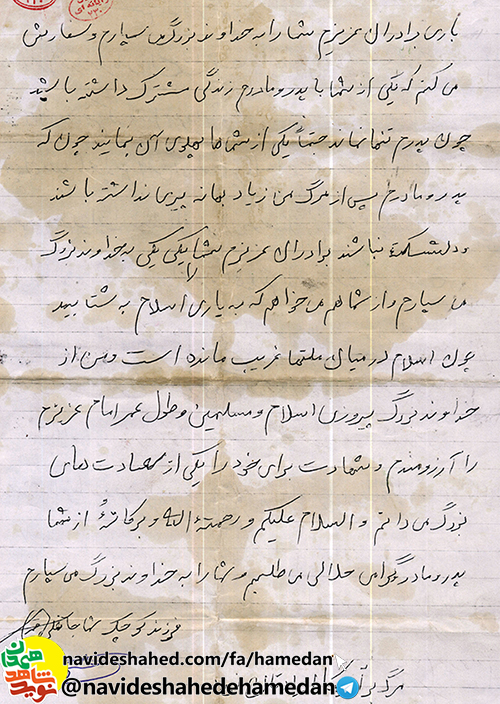 باری برادران عزیزم شما را به خداوند بزرگ می سپارم و سفارش
می کنم که یکی از شما با پدر و مادرم زندگی مشترک داشته باشید
چون پدرم تنها نماند حتماً یکی از شماها پهلوی آن بمانید چون که
پدر و مادرم پس از مرگ من زیاد بهانه پیری نداشته باشند
و دلشکسته نباشند برادران عزیزم شما را یکی یکی به خداوند بزرگ
می سپارم و از شما هم می خواهم که به یاری اسلام بشتابید
چون اسلام در میان ملتها غریب مانده است و من از
خداوند بزرگ پیروزی اسلام و مسلمین و طول عمر امام عزیزم
را آرزومندم و شهادت برای خود را یکی از سعادت های
بزرگ می دانم و السلام علیکم و رحمة الله و برکاته از شما
پدر و مادر گرامی حلالی می طلبم و شما را به خداوند بزرگ می سپارم
فرزند کوچک شما
مرگ بر
navideshahed.com/fa/hamedan
@navideshahedehamedan
نوید شاهد همدان